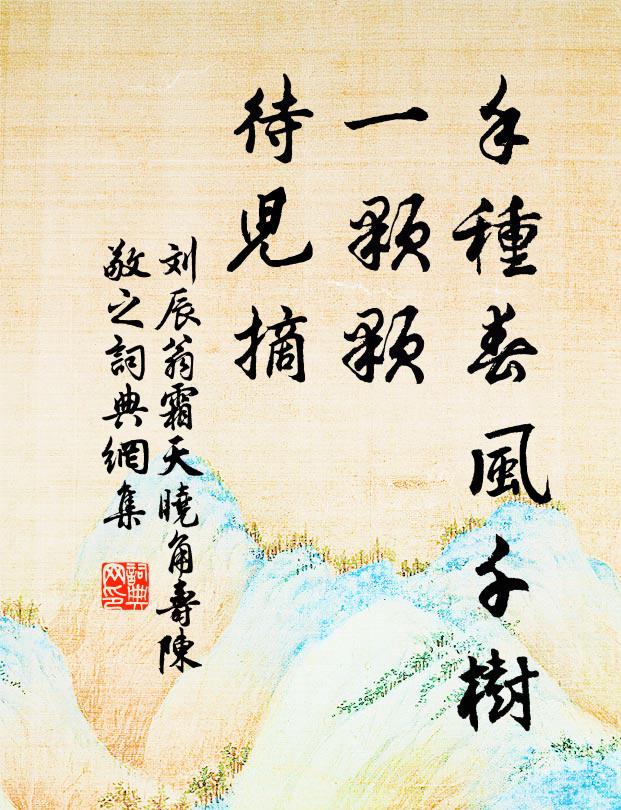 手種春風千樹
一顆顆
待児摘
刘辰翁霜天曉角壽陳
敬之詞典網集
詞典
网印